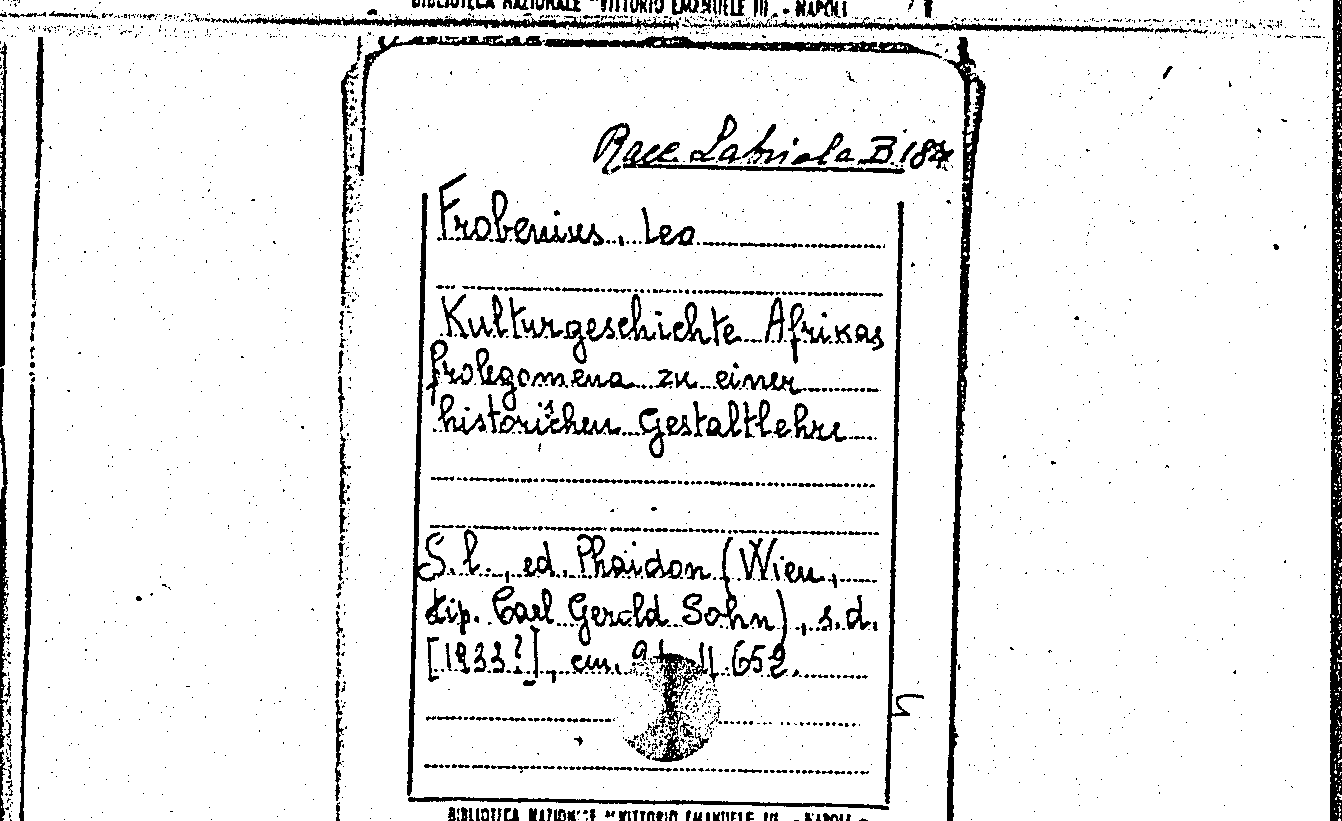 BIBLIOTECA NAZIONALE "VITTORIO EMANUELE III" - NAPOLI
Racc. Labriola B 187
Frobenius, Leo
Kulturgeschichte Afrikas
prolegomena zu einer
historischen Gestaltlehre
S.l., ed. Phaidon (Wien,
tip. Carl Gerold Sohn), s.d.
[1933?], cm. 652.
BIBLIOTECA NAZIONALE "VITTORIO EMANUELE III" - NAPOLI